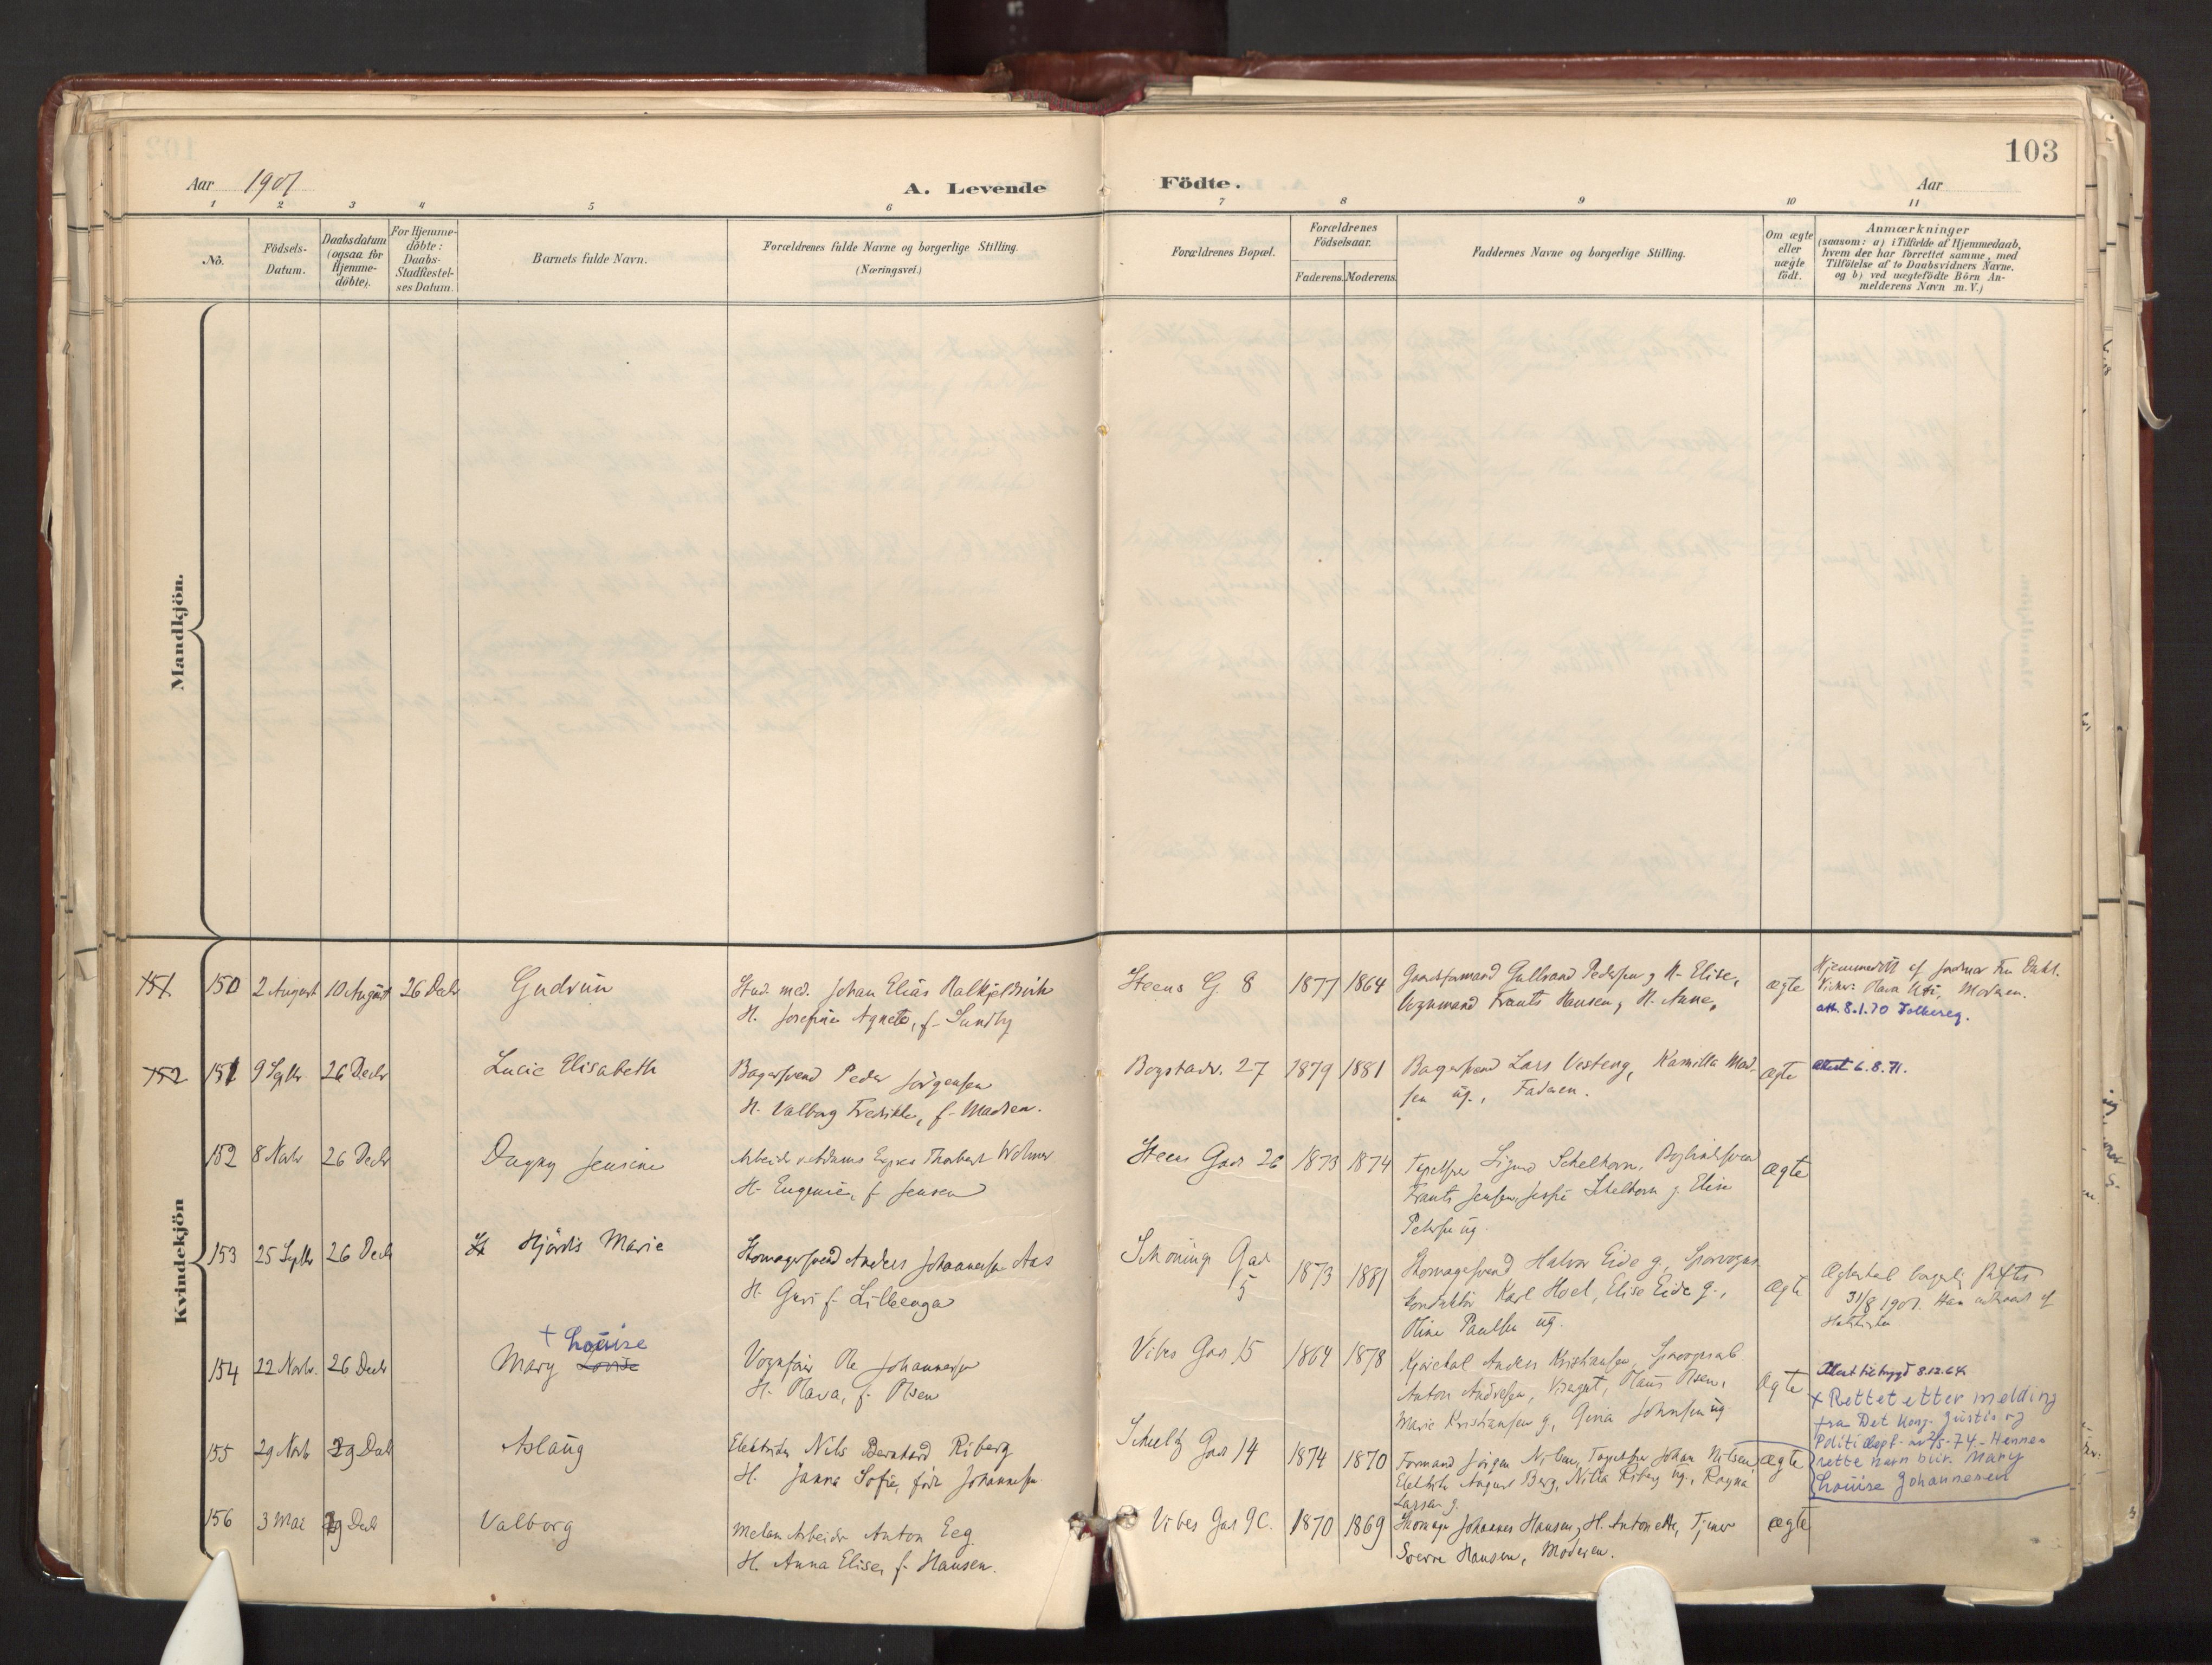 103
Aar 1901
A. Levende
Födte.
Aar
1 2 3 4 5 6 7 8 9 10 11
No.
Födsels-
Datum.
Daabsdatum
(ogsaa for
Hjemme-
döbte).
For Hjemme-
döbte:
Daabs-
Stadfæstel-
ses Datum.
Barnets fulde Navn.
Forældrenes fulde Navne og borgerlige Stilling.
(Næringsvei.)
Forældrenes Bopæl.
Forældrenes
Födselsaar.
Faderens. Moderens.
Faddernes Navne og borgerlige Stilling.
Om ægte
eller
uægte
födt.
Anmærkninger
(saasom: a) i Tilfælde af Hjemmedaab,
hvem der har forrettet samme, med
Tilföielse af to Daabsvidners Navne.
og b) ved uægtefödte Börn An-
melderens Navn m. V.)
Mandkjön.
Kvindekjön
151 150 2 August 10 August 26 Decbr
Gudrun
Stud. med. Johan Elias
H. Josefine Agnete, f. Sundby
Steens G 8
1877 1864
Gullrand Pedersen g H. Elise,
Vognmand Frants Hansen, H. Anne.
ægte
Hjemmedöbt af Jordmor Fru Dahl.
Moderen.
att. 8.1.70 Folkereg.
152 151 9 Septbr 26 Decbr
Lucie Elisabeth
Bagersvend Peder Jörgensen
H. Valborg Fredrikke, f. Madsen.
Bogstadv. 27
1879 1881
Bagersvend Lars Vesteng, Kamilla Mad-
sen ug., Faderen.
ægte
Attest 6.8.71.
152 8 Novbr 26 Decbr
Dagny Jensine
Arbeider v. Adams Expres Thorbert Wolmer
H. Eugenie, f. Jensen
Steens Gad 26
1873 1874
Sigurd Schelhorn,
Frants Jensen, Schelhorn g. Elise
ug.
ægte
153 25 Septbr 26 Decbr
Hjördis Marie
Skomagersvend Anders Johannesen Aas
H. Guri f. Lilleenga
Schönings Gad
5
1873 1881
Skomagersvend Halvor Eide g, Sporvogns
konduktör Karl Hoel, Elise Eide g.,
Oline Paulsen ug.
ægte
31/8 1901.
154 22 Novbr. 26 Decbr
+ Louise
Mary Lovise
Ole Johannesen
H. Olava, f. Olsen
Vibes Gad 15
1864 1878
Anders Kristiansen,
Anton Andresen, Olaus Olsen,
Marie Kristiansen g, Gina Johnsen ug
ægte
8.12.64
+ Rettet etter melding
fra Det kong. Justis og
Politidept. av 2/5-74. Hennes
rette navn blir: Mary
Louise Johannesen
155 29 Novbr 29 Decbr
Aslaug
Elektriker Nils Bernhard Riberg
H. Janna Sofie, född Johannesen
Schultz Gad 14
1874 1870
Formand Jörgen Nilsen, Johan Nilsen
Elektriker August Berg, Nilla Riberg ug., Ragna
Larsen g.
ægte
156 3 Mai 29 Decbr
Valborg
Arbeider Anton Eeg.
H. Anna Elise, f. Hansen.
Vibes Gad 9C.
1870 1869
Skomager Johannes Hansen, H. Antonette, Tjener
Sverre Hansen, Moderen.
ægte